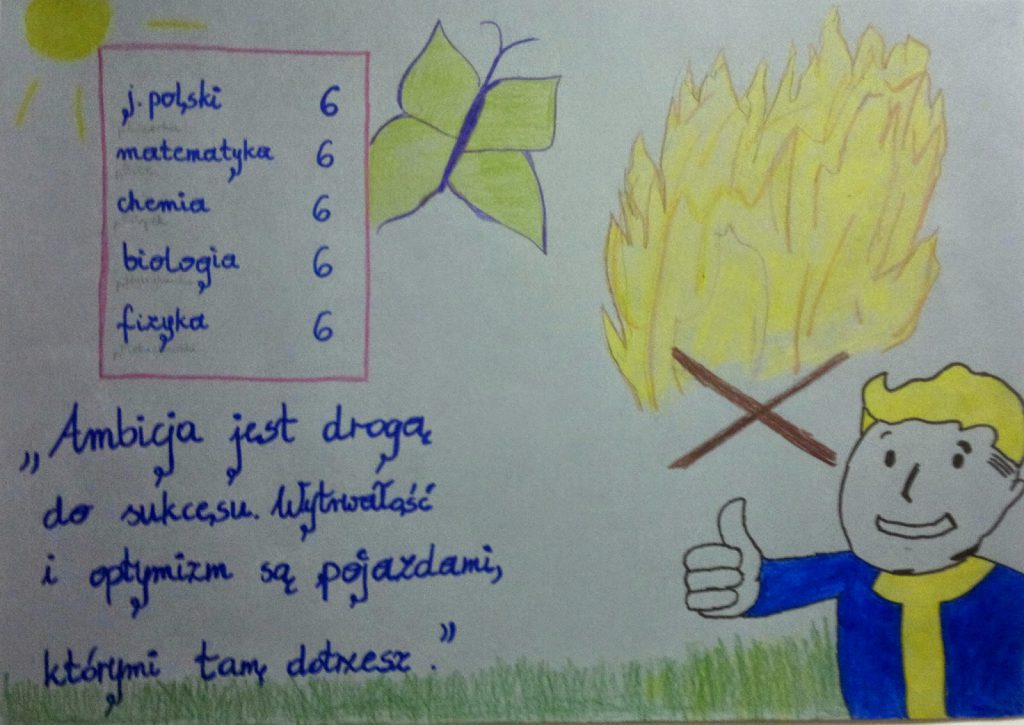 j. polski 6
matematyka 6
chemia 6
biologia 6
fizyka 6
„Ambicja jest drogą
do sukcesu. Wytrwałość
i optymizm są pojazdami,
którymi tam dotrzesz.”